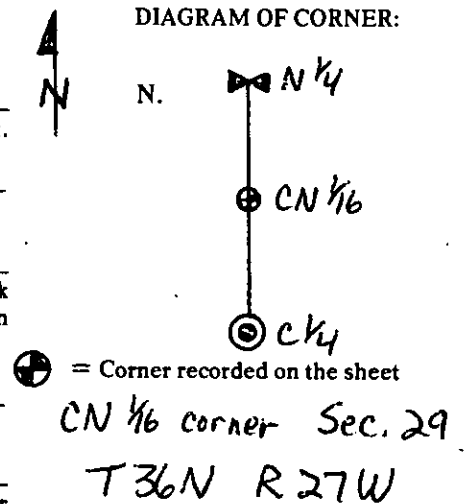 DIAGRAM OF CORNER:
N
N.
N 1/4
CN 1/16
C 1/4
= Corner recorded on the sheet
CN 1/16 corner Sec. 29
T36N R27W